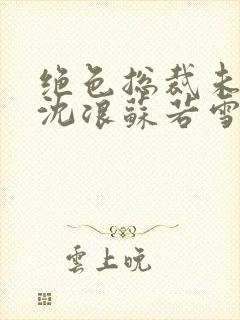 绝色总裁未
沈浪蘇若雪
雲上晚